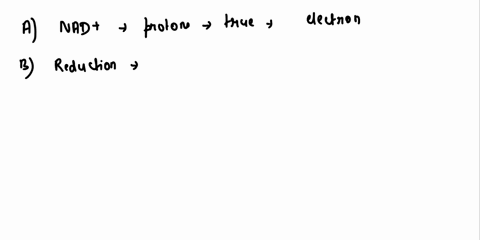 A) NAD+ → proton → true → electron
B) Reduction →